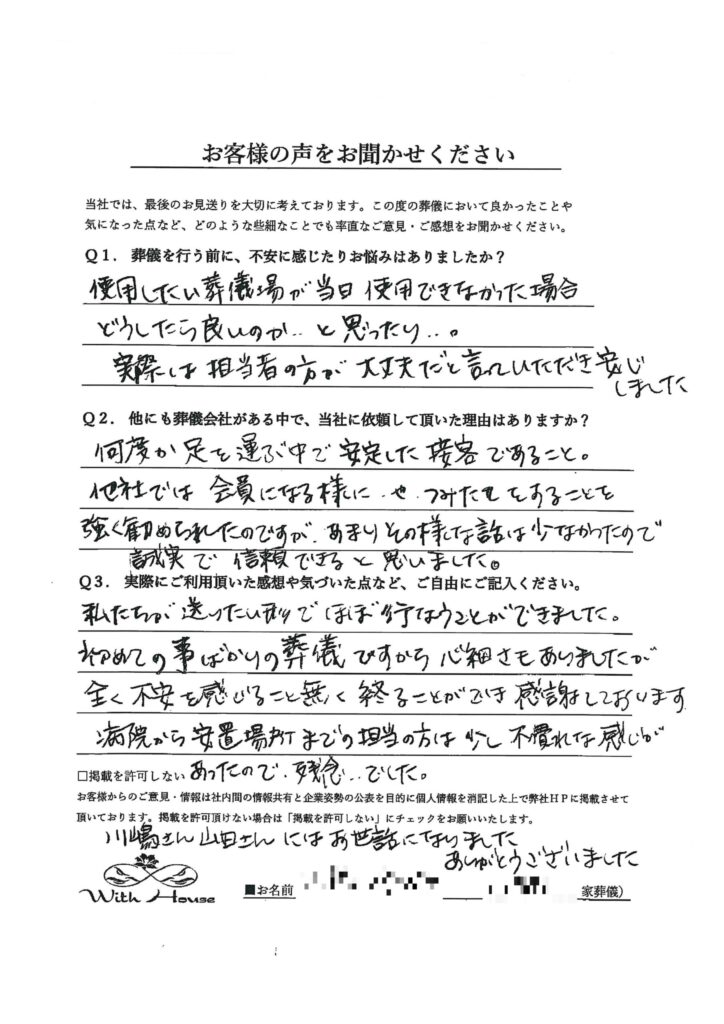 お客様の声をお聞かせください
当社では、最後のお見送りを大切に考えております。この度の葬儀において良かったことや
気になった点など、どのような些細なことでも率直なご意見・ご感想をお聞かせください。
Q1. 葬儀を行う前に、不安に感じたりお悩みはありましたか？
使用したい葬儀場が当日使用できなかった場合
どうしたら良いのか‥と思ったり‥。
実際は担当者の方が大丈夫だと言っていただき安心
しました
Q2. 他にも葬儀会社がある中で、当社に依頼して頂いた理由はありますか？
何度か足を運ぶ中で安定した接客であること。
他社では会員になる様に、や、つみたてをすることを
強く勧められたのですが、あまりその様な話は少なかったので
誠実で信頼できると思いました。
Q3. 実際にご利用頂いた感想や気づいた点など、ご自由にご記入ください。
私たちが送りたい形でほぼ行なうことができました。
初めての事ばかりの葬儀ですから心細さもありましたが
全く不安を感じること無く終ることができ感謝しております
病院から安置場所までの担当の方は少し不慣れな感じが
□掲載を許可しない あったので、残念‥でした。
お客様からのご意見・情報は社内間の情報共有と企業姿勢の公表を目的に個人情報を消記した上で弊社HPに掲載させて
頂いております。掲載を許可頂けない場合は「掲載を許可しない」にチェックをお願いいたします。
川嶋さん山田さんにはお世話になりました
ありがとうございました
With House
■お名前 家葬儀）